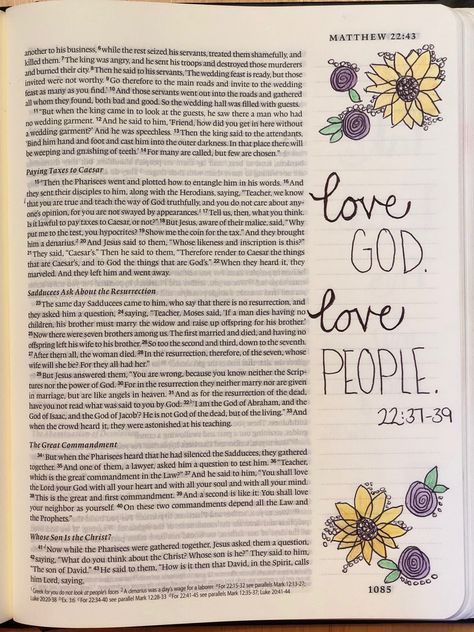 MATTHEW 22:43
another to his business, 6 while the rest seized his servants, treated them shamefully, and
killed them. 7 The king was angry, and he sent his troops and destroyed those murderers
and burned their city. 8 Then he said to his servants, 'The wedding feast is ready, but those
invited were not worthy. 9 Go therefore to the main roads and invite to the wedding
feast as many as you find.' 10 And those servants went out into the roads and gathered
all whom they found, both bad and good. So the wedding hall was filled with guests.
11 "But when the king came in to look at the guests, he saw there a man who had
no wedding garment. 12 And he said to him, 'Friend, how did you get in here without
a wedding garment?' And he was speechless. 13 Then the king said to the attendants,
'Bind him hand and foot and cast him into the outer darkness. In that place there will
be weeping and gnashing of teeth.' 14 For many are called, but few are chosen."
Paying Taxes to Caesar
15 Then the Pharisees went and plotted how to entangle him in his words. 16 And
they sent their disciples to him, along with the Herodians, saying, "Teacher, we know
that you are true and teach the way of God truthfully, and you do not care about any-
one's opinion, for you are not swayed by appearances. 17 Tell us, then, what you think.
Is it lawful to pay taxes to Caesar, or not?" 18 But Jesus, aware of their malice, said, "Why
put me to the test, you hypocrites? 19 Show me the coin for the tax." And they brought
him a denarius. 20 And Jesus said to them, "Whose likeness and inscription is this?"
21 They said, "Caesar's." Then he said to them, "Therefore render to Caesar the things
that are Caesar's, and to God the things that are God's." 22 When they heard it, they
marveled. And they left him and went away.
Sadducees Ask About the Resurrection
23 The same day Sadducees came to him, who say that there is no resurrection, and
they asked him a question, 24 saying, "Teacher, Moses said, 'If a man dies having no
children, his brother must marry the widow and raise up offspring for his brother.'
25 Now there were seven brothers among us. The first married and died, and having no
offspring left his wife to his brother. 26 So too the second and third, down to the seventh.
27 After them all, the woman died. 28 In the resurrection, therefore, of the seven, whose
wife will she be? For they all had her."
29 But Jesus answered them, "You are wrong, because you know neither the Scrip-
tures nor the power of God. 30 For in the resurrection they neither marry nor are given
in marriage, but are like angels in heaven. 31 And as for the resurrection of the dead,
have you not read what was said to you by God: 32 'I am the God of Abraham, and the
God of Isaac, and the God of Jacob'? He is not God of the dead, but of the living." 33 And
when the crowd heard it, they were astonished at his teaching.
The Great Commandment
34 But when the Pharisees heard that he had silenced the Sadducees, they gathered
together. 35 And one of them, a lawyer, asked him a question to test him. 36 "Teacher,
which is the great commandment in the Law?" 37 And he said to him, "You shall love
the Lord your God with all your heart and with all your soul and with all your mind.
38 This is the great and first commandment. 39 And a second is like it: You shall love
your neighbor as yourself. 40 On these two commandments depend all the Law and
the Prophets."
Whose Son Is the Christ?
41 Now while the Pharisees were gathered together, Jesus asked them a question,
42 saying, "What do you think about the Christ? Whose son is he?" They said to him,
"The son of David." 43 He said to them, "How is it then that David, in the Spirit, calls
him Lord, saying,
love
GOD.
love
PEOPLE.
22:37-39
1085